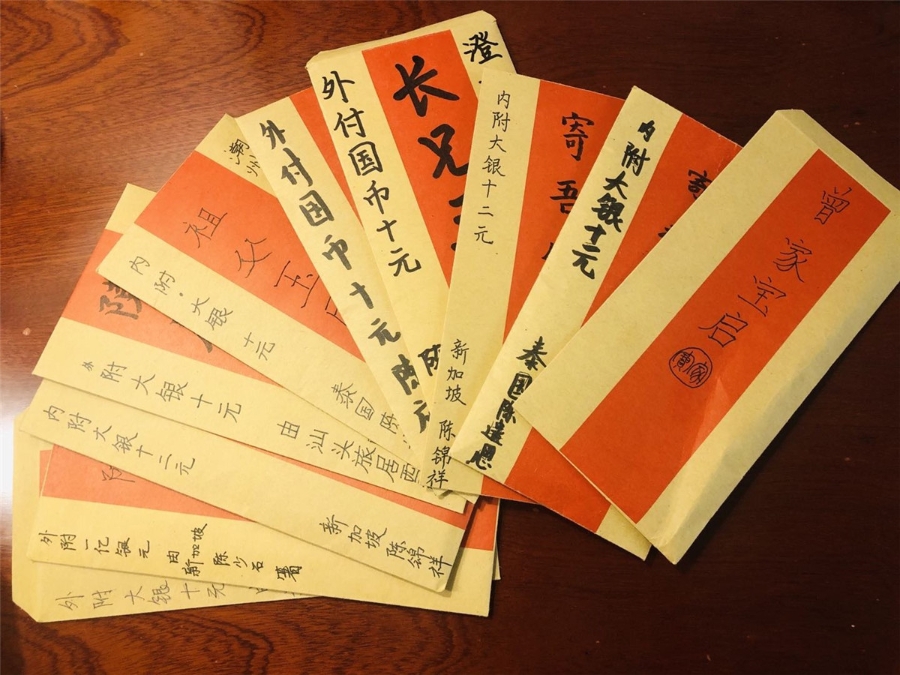 曾家宝启
内附大银十元
泰国陈连恩
寄吾
内附大银十二元
新加坡 陈锦祥
澄
长兄
外付国币十元
外付国币十元
潮州
祖父玉
内附大银十元
泰国陈
外附大银十元
由汕头旅居西
内附大银十二元
新加坡 陈锦祥
外附一亿银元
由新加坡陈少石寄
外附大银十元